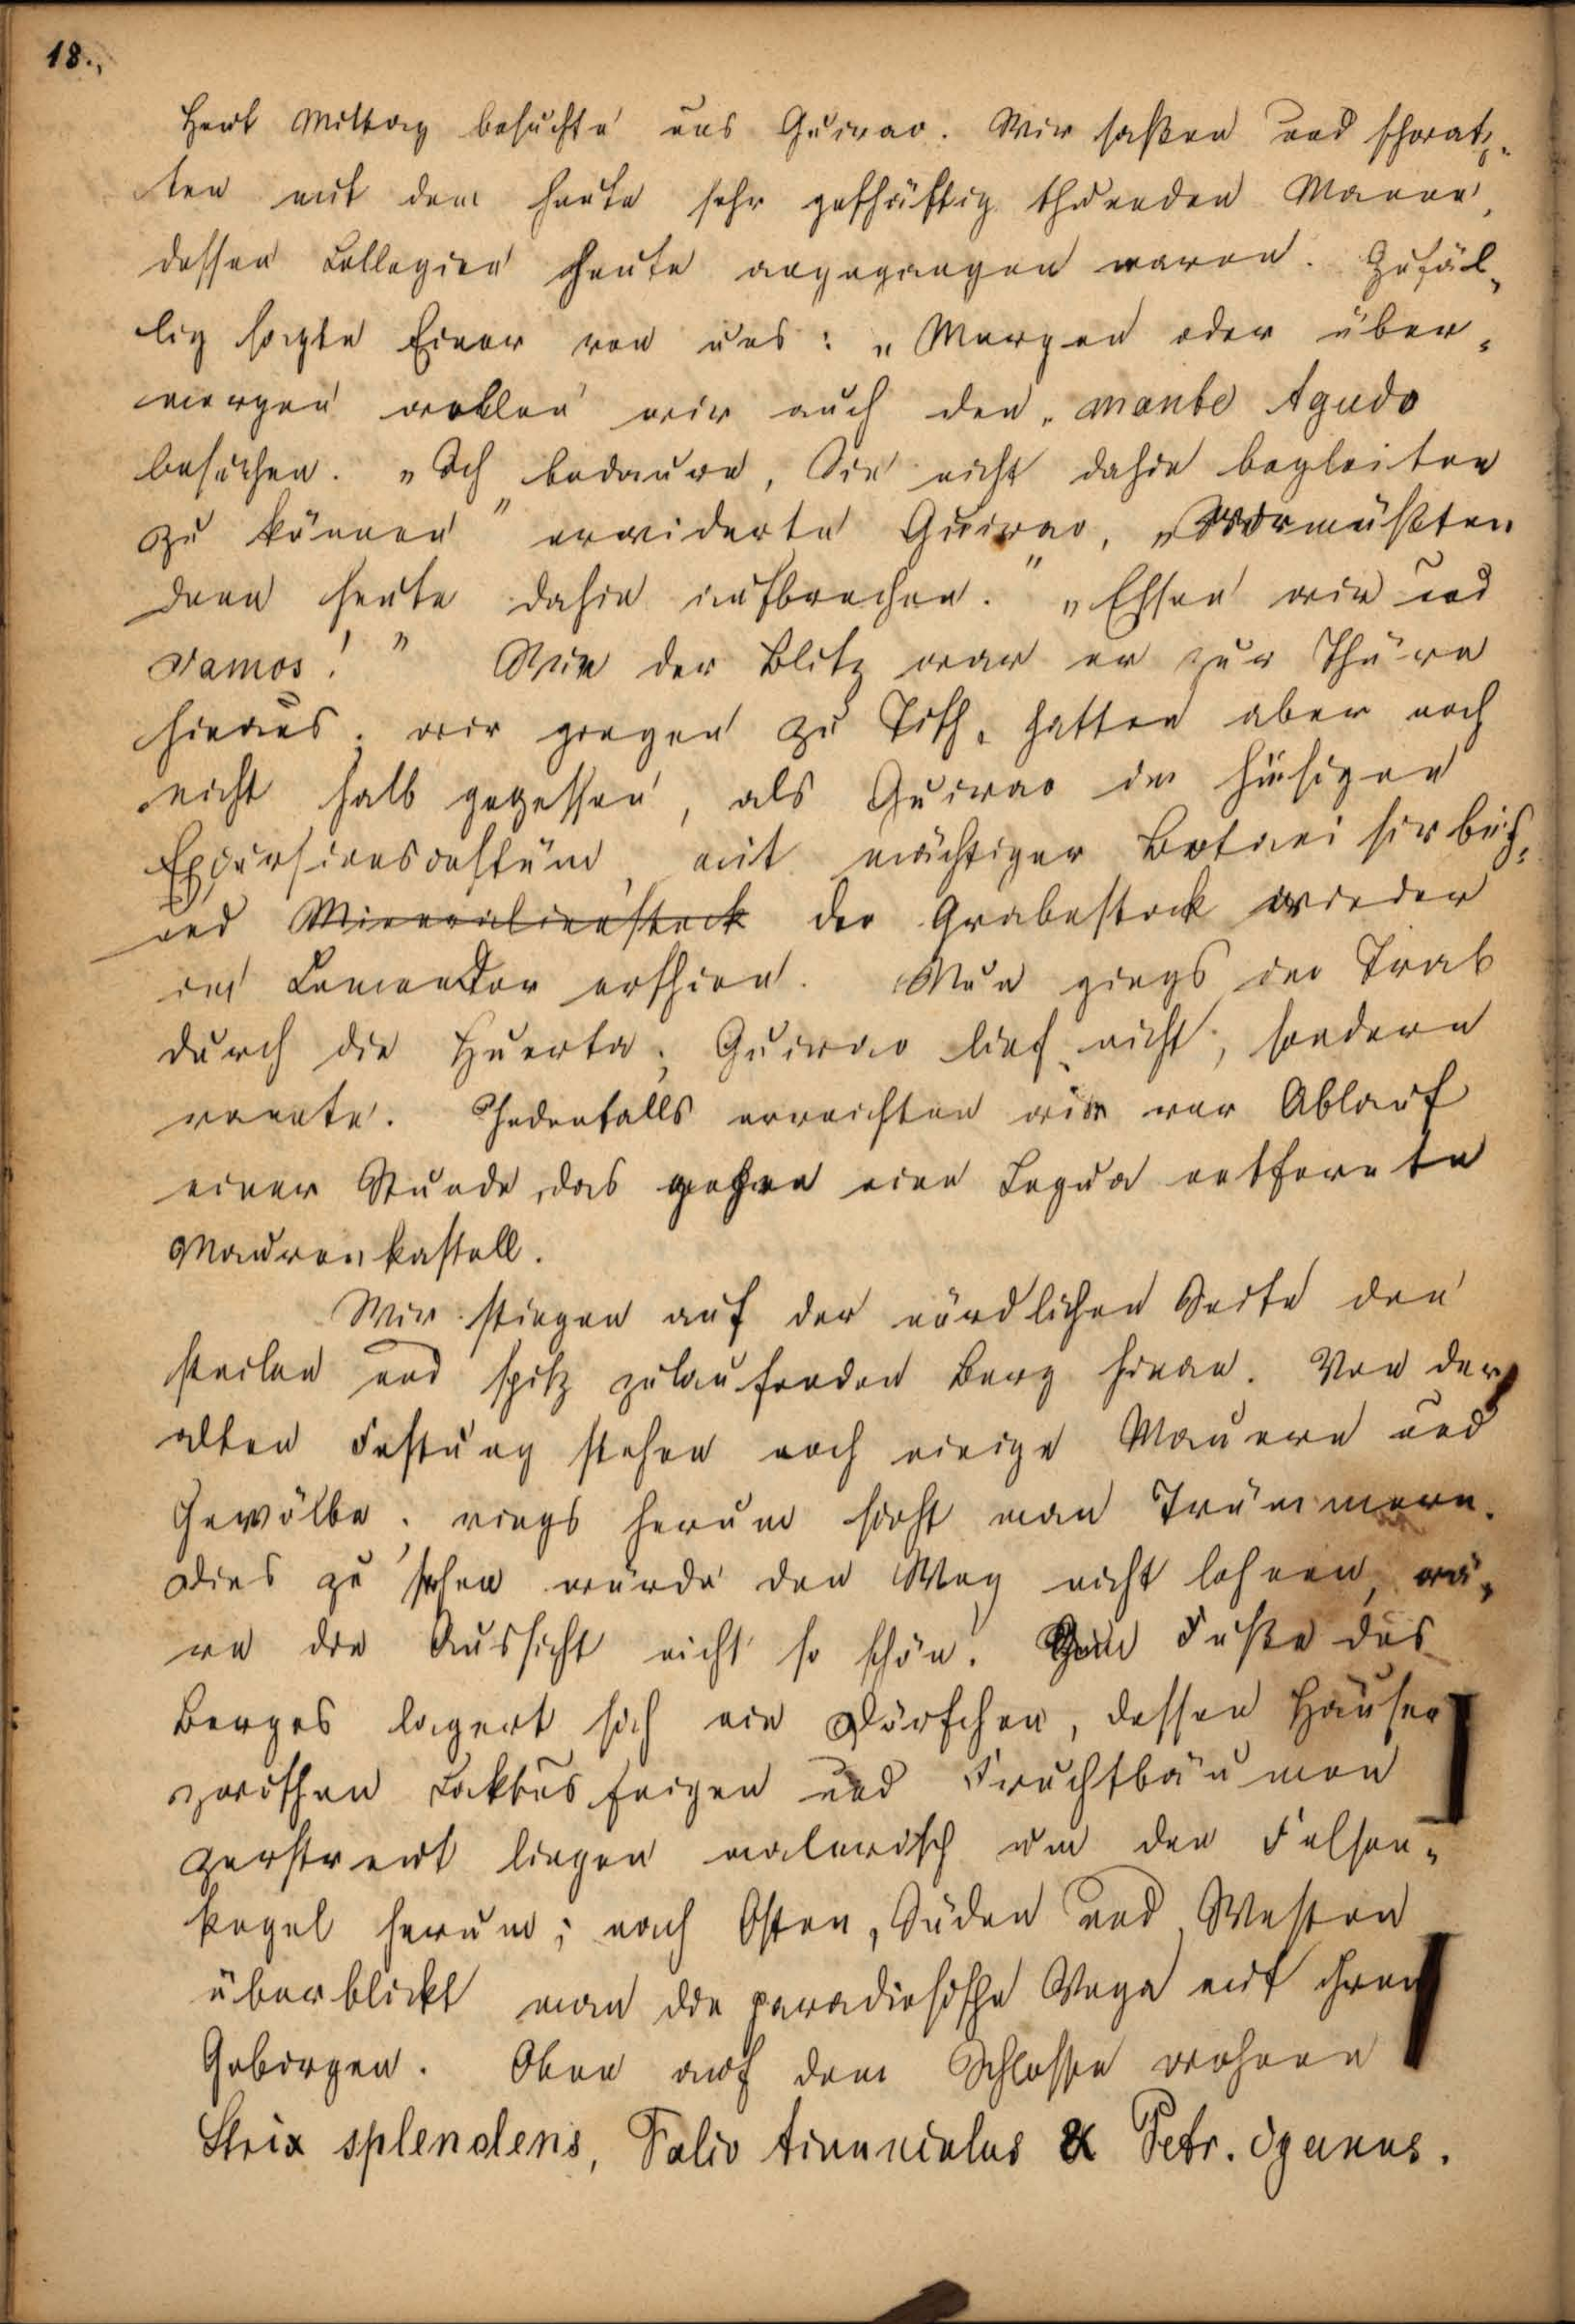 18.,
Heut Mittag besuchte uns Guirao. Wir saßen und schwatz-
ten mit dem heute sehr geschäftig thuenden Manne,
dessen Collegien heute angegangen waren. Zufäl-
lig sagte Einer von uns: „Morgen oder über-
morgen wollen wir auch den monte Agudo
besuchen. „Ich bedaure, Sie nicht dahin begleiten
zu können" erwiderte Guirao, „wir müßten
denn heute dahin aufbrechen." „Essen wir und
vamos!" Wie der Blitz war er zur Thüre
hinaus; wir gingen zu Tisch, hatten aber noch
nicht halb gegessen, als Guirao im hiesigen
Excursionscostüm, mit mächtiger Botanisirbüch-
und Mineralienstock der Grabestock wieder
im Comedor erschien. Nun gings im Trab
durch die Huerta; Guirao lief nicht, sondern
rannte. Jedenfalls erreichten wir vor Ablauf
einer Stunde das gegen eine Legua entfernte
Maurenkastell.
Wir stiegen auf der nördlichen Seite den
steilen und spitz zulaufenden Berg hinan. Von der
alten Festung stehen noch einige Mauern und
Gewölbe; rings herum sieht man Trümmern.
Dies zu sehen würde den Weg nicht lohnen, wä-
re die Aussicht nicht so schön. Fuße des
Berges lagert sich ein Dörfchen, dessen Häuser
zwischen Caktusfeigen und Fruchtbäumen
zerstreut liegen malerisch um den Felsen-
kegel herum; nach Osten, Süden und Westen
überblickt man die paradiesische Vega mit ihren
Gebirgen. Oben auf dem Schlosse wohnen
Strix splendens, Falco tinunculus & Petr. cyanus.